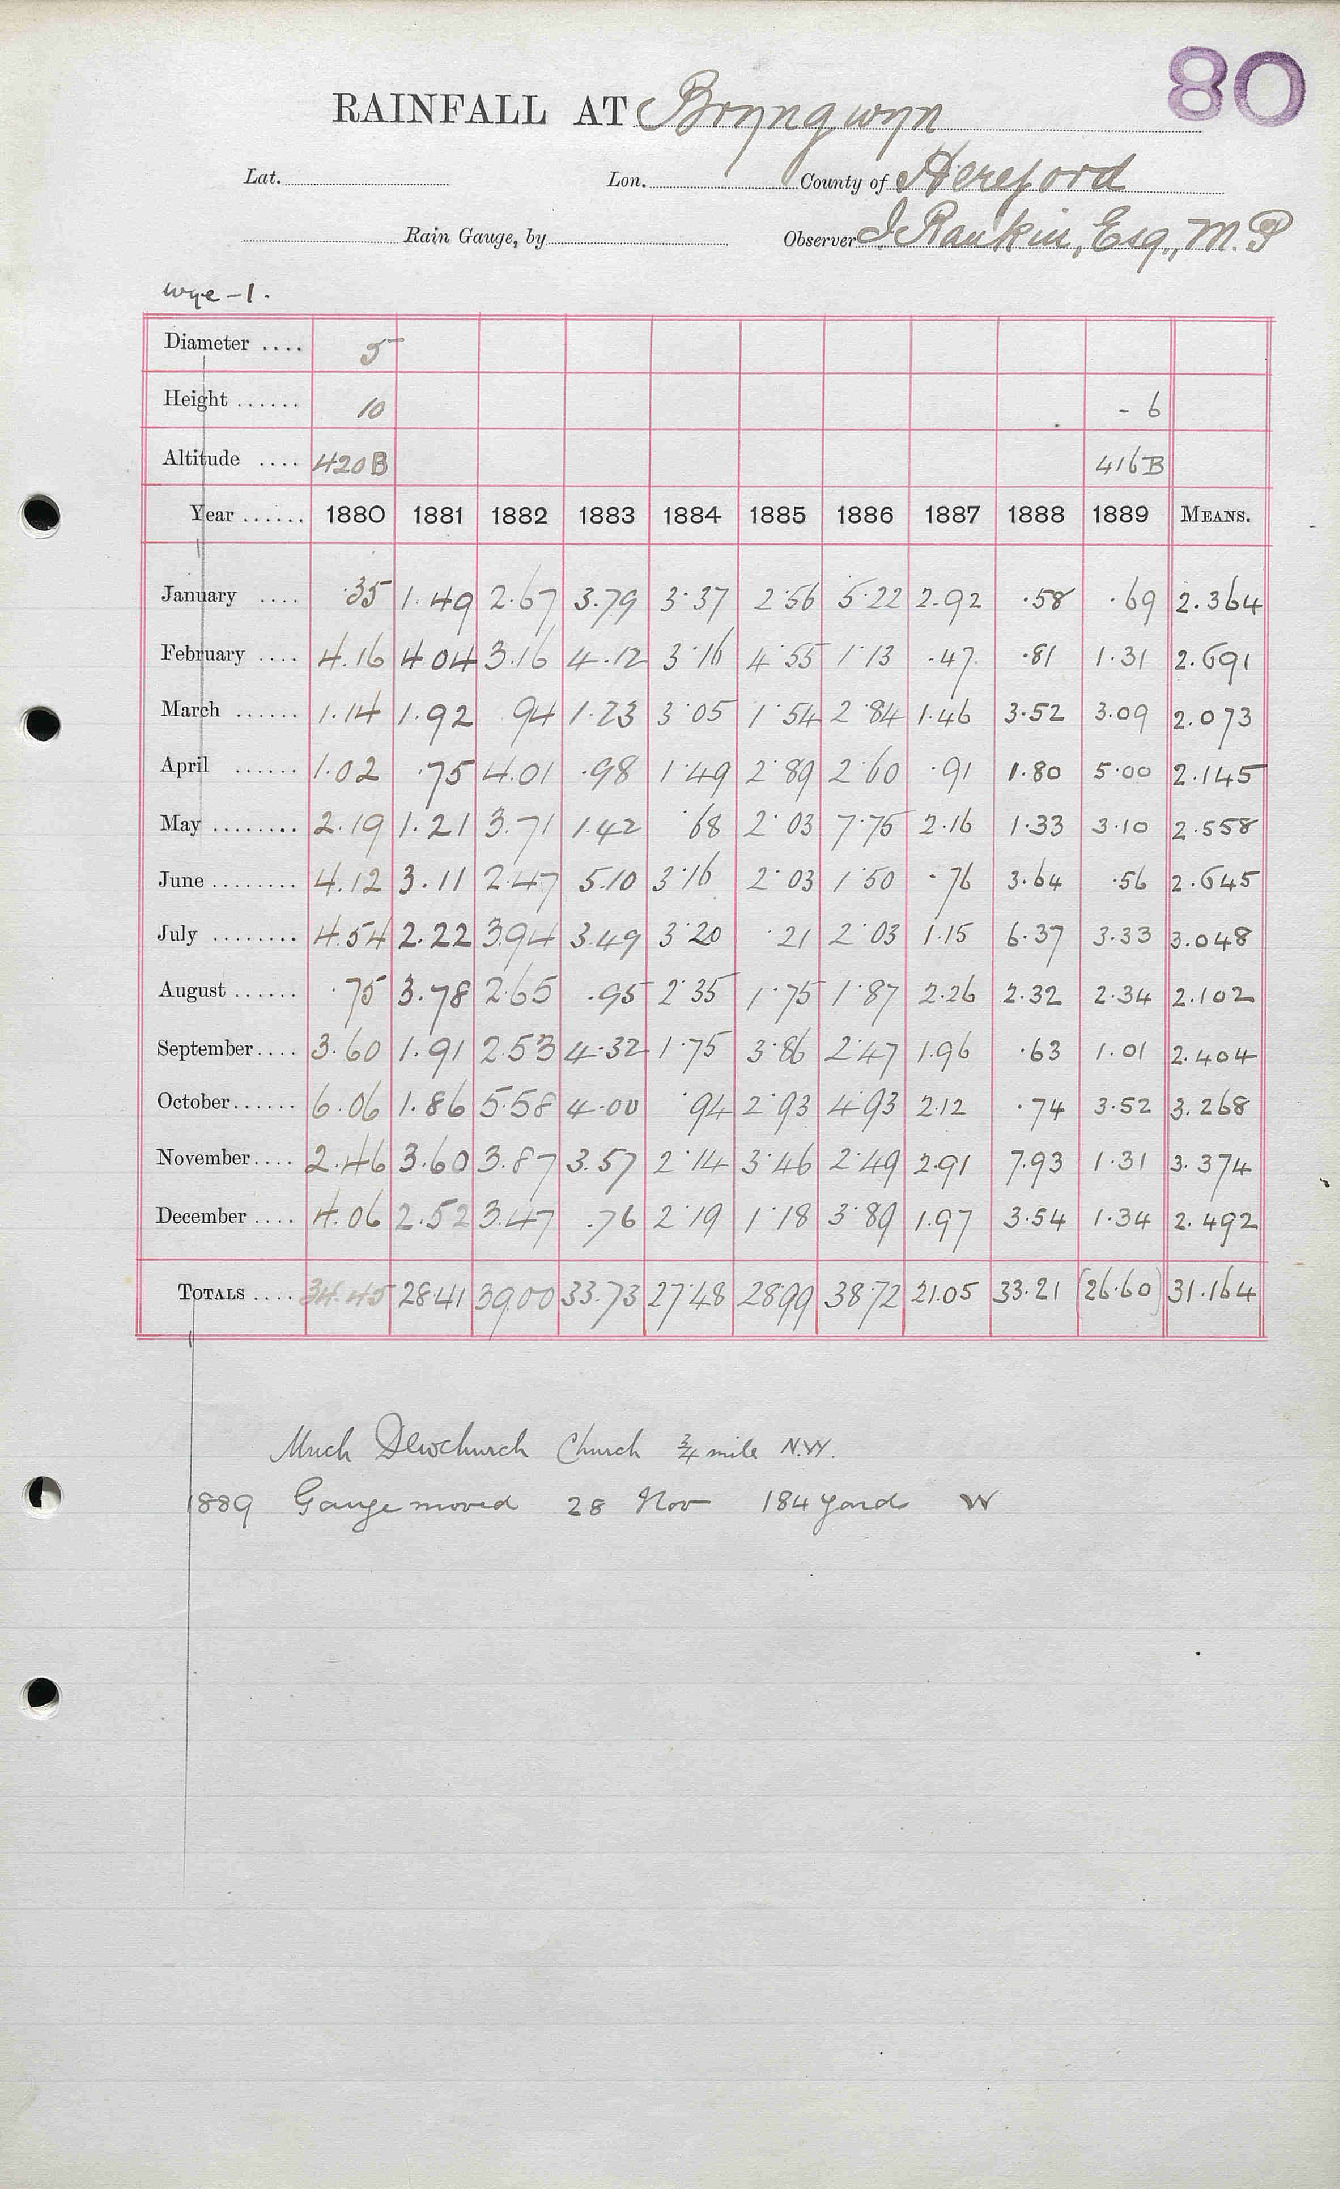 80
RAINFALL AT Bryngwyn
Lat. Lon. County of Hereford
Rain Gauge, by Observer J Rankin, Esq., M.P
Wye - 1.
Diameter .... 5
Height ...... 10 - 6
Altitude .... 420B 416B
Year ...... 1880 1881 1882 1883 1884 1885 1886 1887 1888 1889 MEANS.
January .... .35 1.49 2.67 3.79 3.37 2.56 5.22 2.92 .58 .69 2.364
February .... 4.16 4.04 3.16 4.12 3.16 4.55 1.13 .47 .81 1.31 2.691
March ...... 1.14 1.92 .94 1.23 3.05 1.54 2.84 1.46 3.52 3.09 2.073
April ...... 1.02 .75 4.01 .98 1.49 2.89 2.60 .91 1.80 5.00 2.145
May ........ 2.19 1.21 3.71 1.42 .68 2.03 7.75 2.16 1.33 3.10 2.558
June ........ 4.12 3.11 2.47 5.10 3.16 2.03 1.50 .76 3.64 .56 2.645
July ........ 4.54 2.22 3.94 3.49 3.20 .21 2.03 1.15 6.37 3.33 3.048
August ...... .75 3.78 2.65 .95 2.35 1.75 1.87 2.26 2.32 2.34 2.102
September.... 3.60 1.91 2.53 4.32 1.75 3.86 2.47 1.96 .63 1.01 2.404
October...... 6.06 1.86 5.58 4.00 .94 2.93 4.93 2.12 .74 3.52 3.268
November.... 2.46 3.60 3.87 3.57 2.14 3.46 2.49 2.91 7.93 1.31 3.374
December .... 4.06 2.52 3.47 .76 2.19 1.18 3.89 1.97 3.54 1.34 2.492
TOTALS .... 34.45 28.41 39.00 33.73 27.48 28.99 38.72 21.05 33.21 (26.60) 31.164
Much Dewchurch Church 3/4 mile N.W.
1889 Gauge moved 28 Nov 184 yards W